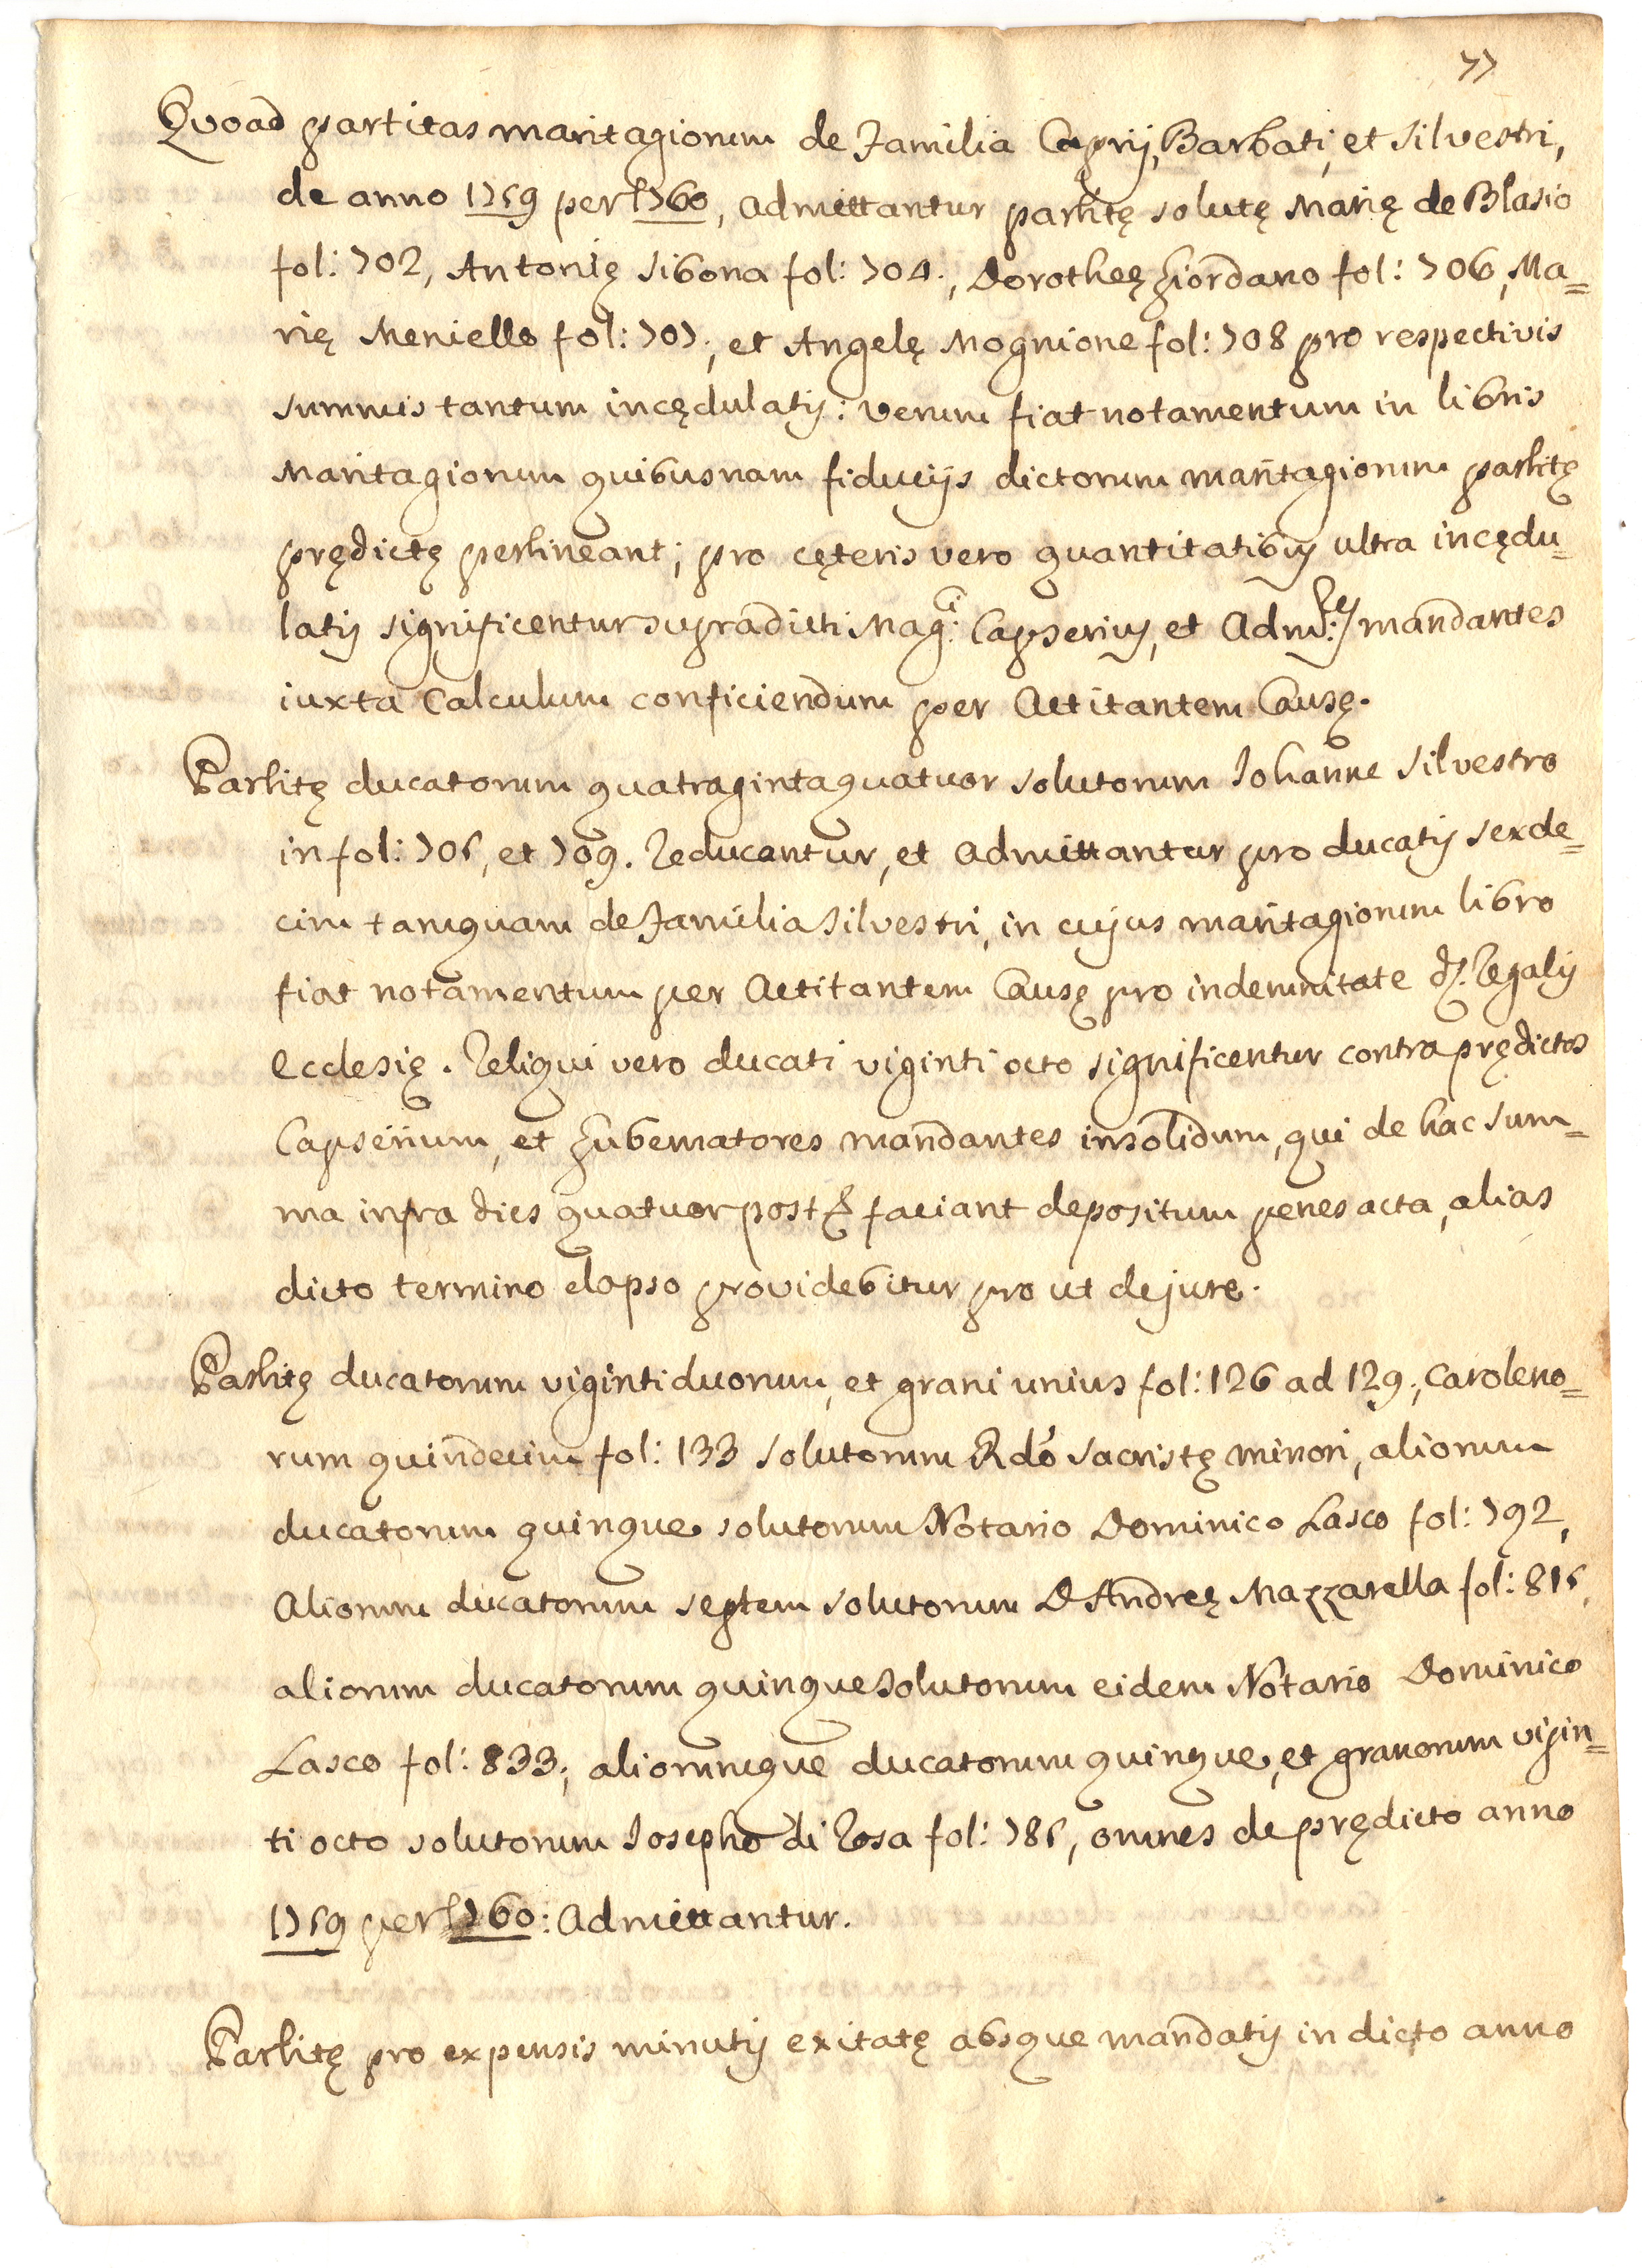 77
Quoad partitas maritagiorum de Familia Caprij, Barbati, et Silvestri,
de anno 1759 per 1760, admittantur partitę solutę Marię de Blasio
fol: 702, Antonię Sibona fol: 704., Dorotheę Giordano fol: 706, Ma=
rię Meniello fol: 707., et Angelę Mognione fol: 708 pro respectivis
summis tantum incędulatis: verum fiat notamentum in libris
Maritagiorum quibusnam fiducijs dictorum maritagiorum partitę
prędictę pertineant; pro cęteris vero quantitatibus ultra incędu=
latis significentur supradicti Mag:ci Capserius, et Adm: mandantes
iuxta Calculum conficiendum per Actitantem Causę.
Partitę ducatorum quatragintaquatuor solutorum Iohanne Silvestro
in fol: 705, et 709. Reducantur, et admittantur pro ducatis sexde=
cim tamquam de Familia Silvestri, in cujus maritagiorum libro
fiat notamentum per Actitantem Causę pro indemnitate Regalis
Ecclesię. Reliqui vero ducati viginti octo significentur contra prędictos
Capserium, et Gubernatores mandantes insolidum, qui de hac sum=
ma infra dies quatuor post faciant depositum penes acta, alias
dicto termino elapso providebitur pro ut de jure.
Partitę ducatorum viginti duorum, et grani unius fol: 126 ad 129., Caroleno=
rum quindecim fol: 133 solutorum Rdo Sacristę minori, aliorum
ducatorum quinque solutorum Notario Dominico Lasco fol: 792,
Aliorum ducatorum septem solutorum D Andreę Mazzarella fol: 815,
aliorum ducatorum quinque solutorum eidem Notario Dominico
Lasco fol: 833., aliorumque ducatorum quinque, et granorum vigin=
ti octo solutorum Iosepho di Rosa fol: 785, omnes de prędicto anno
1759 per 1760: Admittantur.
Partitę pro expensis minutis exitatę absque mandatis in dicto anno